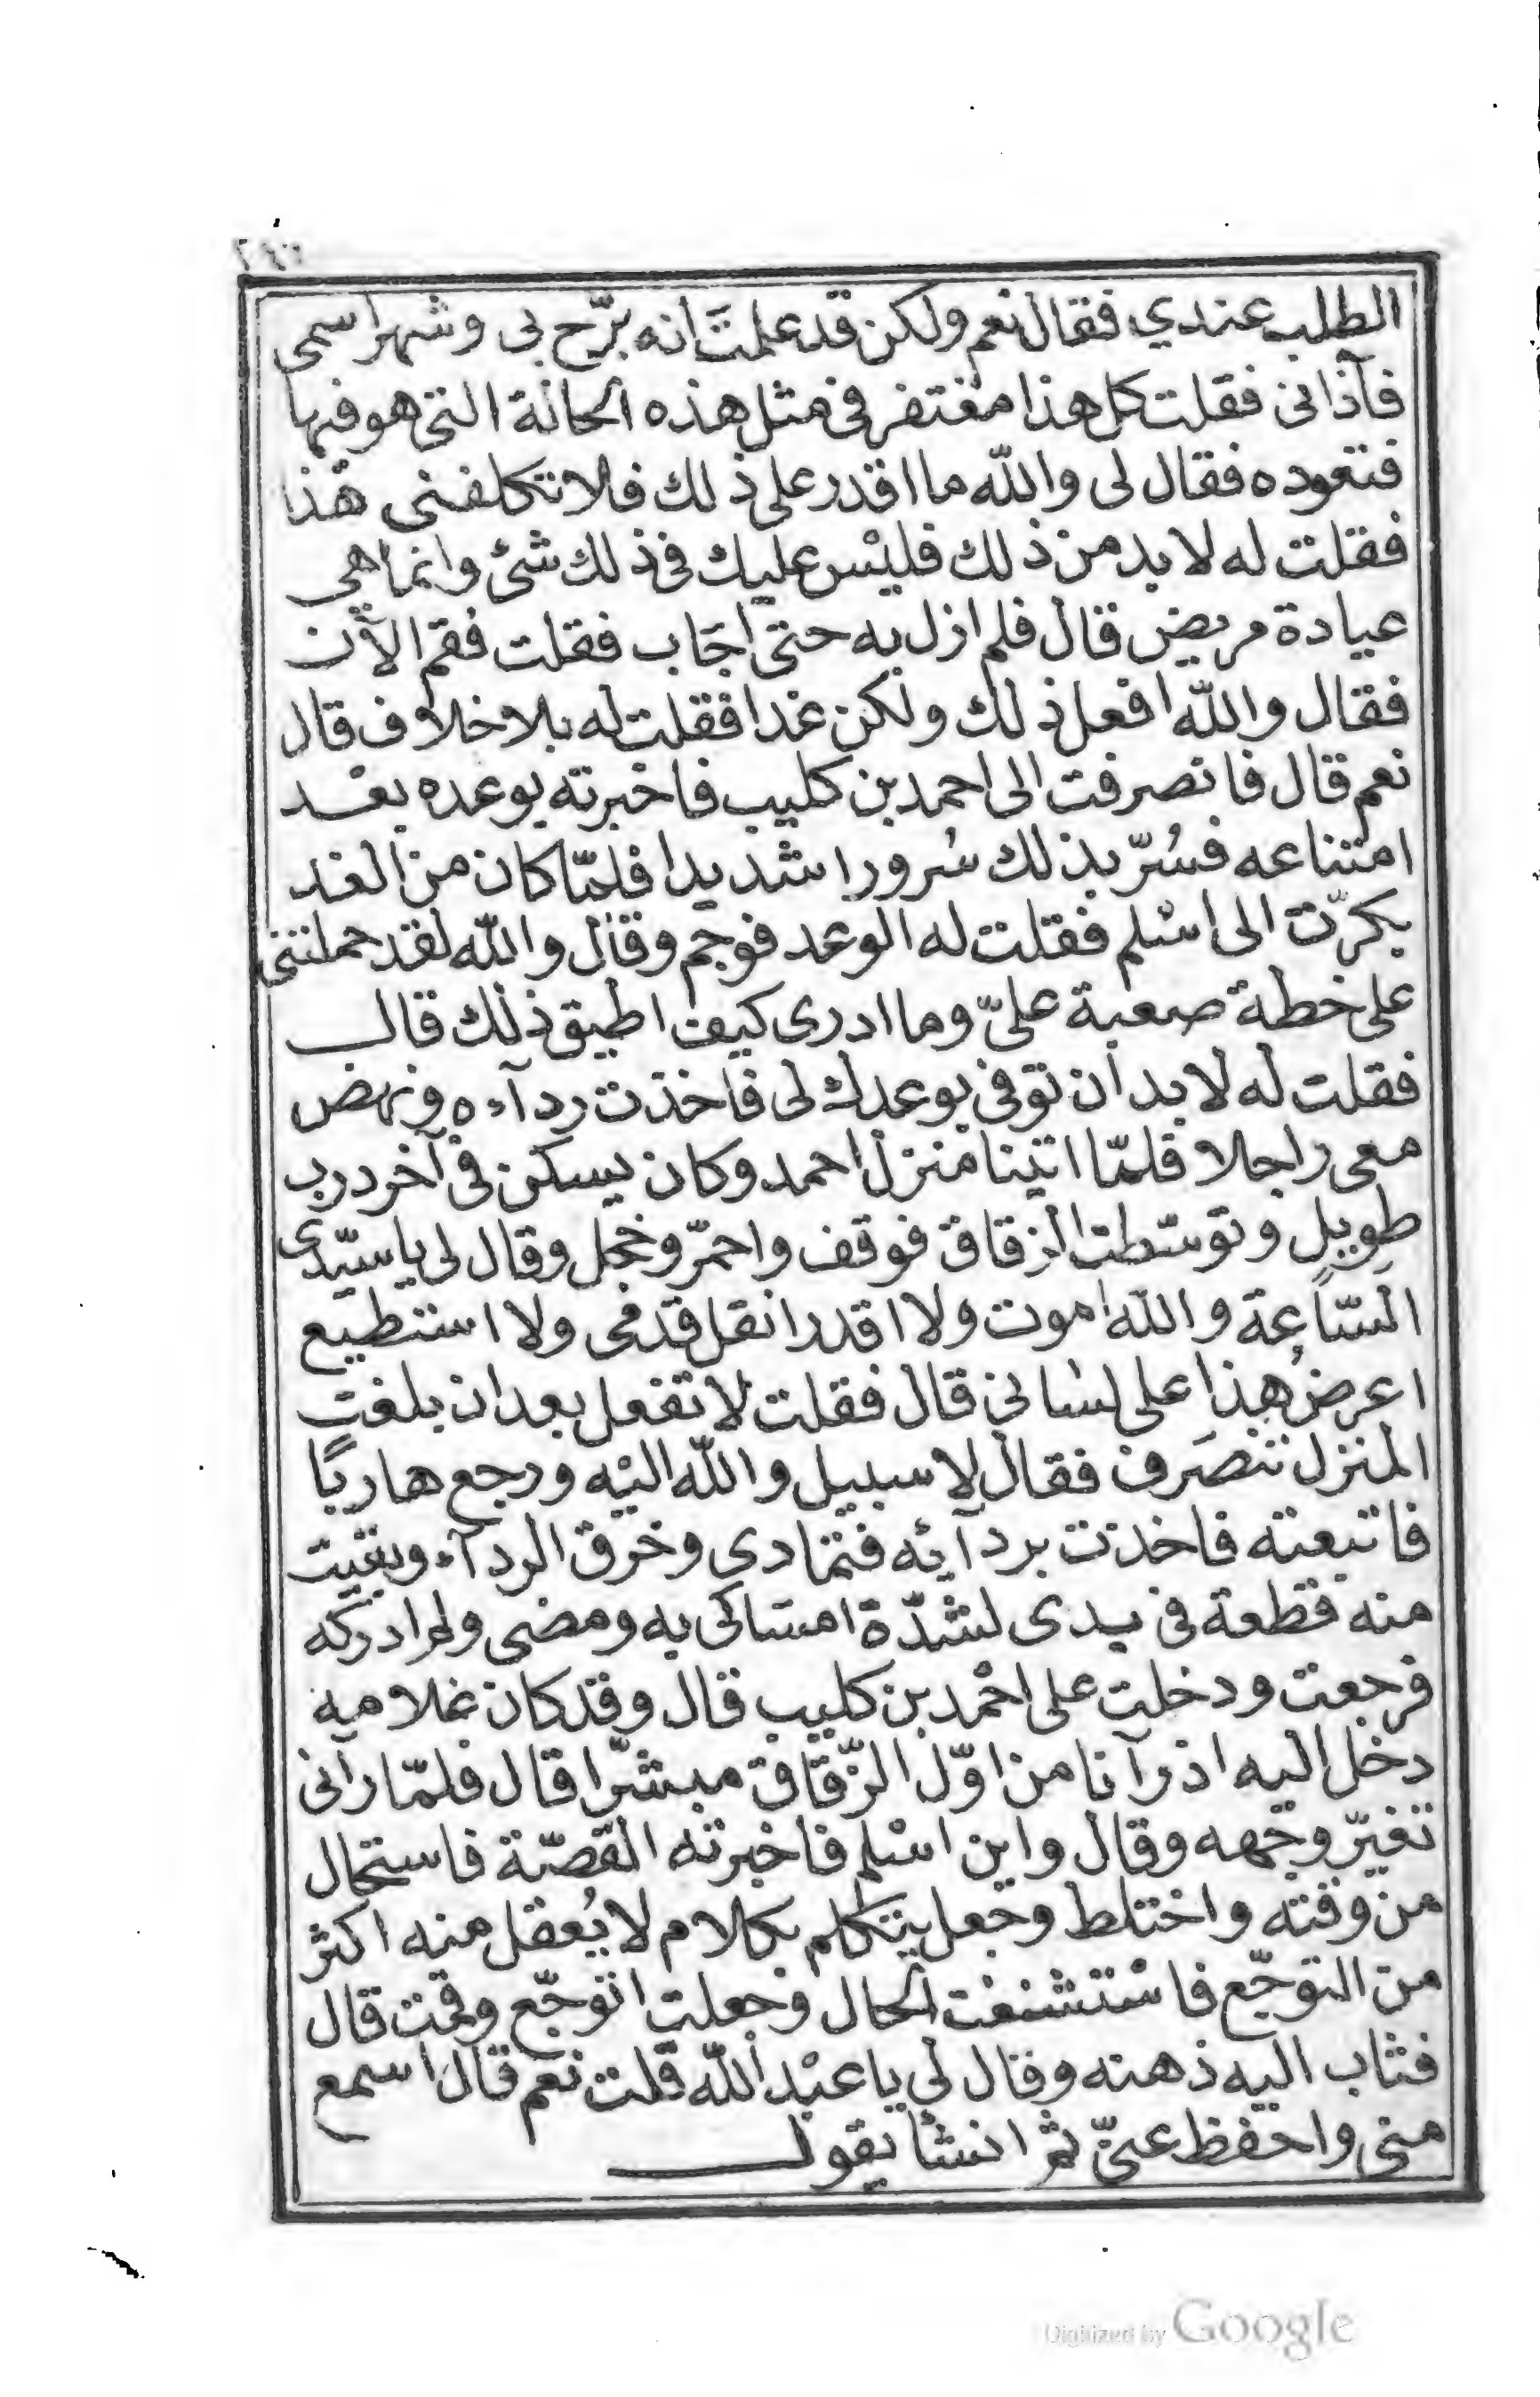 ٢٤٦
الطلب عندي فقال نعم ولكن قد علمتَ انه برّح بى وشهر اسمى
فآذانى فقلت كل هذا مغتفر فى مثل هذه الحالة التى هو فيها
فتعوده فقال لى والله ما اقدر على ذلك فلا تكلفنى هذا
فقلت له لا بد من ذلك فليْس عليك فى ذلك شئ وانما هى
عيادة مريض قال فلم ازل به حتى اجَاب فقلت فقم الآن
فقال والله افعل ذلك ولكن غدا فقلت له بلا خلاف قال
نعم قال فانصرفت الى احمد بن كليب فاخبرته بوعده بعْد
امتناعه فسُرّ بذلك سُرورا شديدا فلمّا كان من الغد
بكرّت الى اسْلم فقلت له الوعد فوجم وقال والله لقد حملتنى
على خطة صعبة علىّ وما ادرى كيف اطيق ذلك قال
فقلت له لا بد أن توفى بوعدك لى فاخذت ردآءه ونهض
معى راجلا فلمّا اتينا منزل احمد وكان يسكن فى آخر درب
طويل وتوسّطت الزقاق فوقف واحمرّ وخجل وقال لى يا سيّدى
السّاعة والله اموت ولا اقدر انقل قدمى ولا استطيع
اعرض هذا على لسانى قال فقلت لا تفعل بعد ان بلغت
المنزل تنصَرف فقال لا سبيل والله اليْه ورجع هاربًا
فاتبعته فاخذت بردآئه فتمادى وخرق الردآء وبقيت
منه قطعة فى يدى لشدّة امسَاكى به ومضى ولم ادركه
فرجعت ودخلت على احْمد بن كليب قال وقد كان غلاميه
دخل اليه اذ رآنا من اوّل الزّقاق مبشّرا قال فلمّا رآنى
تغيّر وجهه وقال واين اسْلم فاخبرته القصّة فاستحال
من وقته واختلط وجعل يتكلم بكلام لا يُعقل منه اكثر
من التوجّع فاسْتشنعْت الحال وجعلت اتوجّع وقمت قال
فثاب اليه ذهنه وقال لى يا عبْد الله قلت نعم قال اسمع
منى واحفظ عنىّ ثم انشأ يقول
Digitized by Google